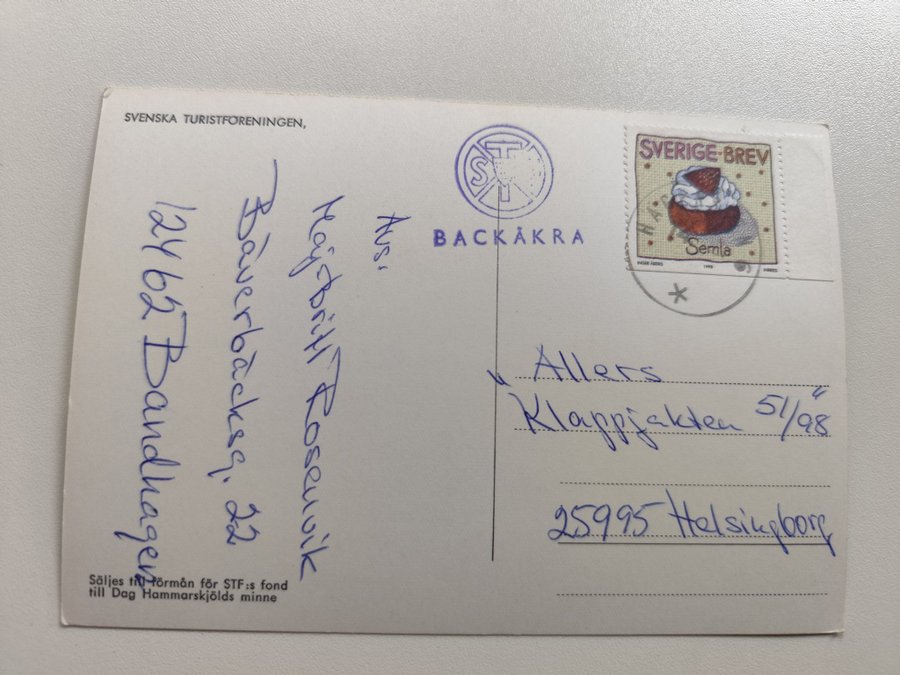 SVENSKA TURISTFÖRENINGEN,
STF
BACKÅKRA
SVERIGE BREV
Semla
1998
Avs.
Majbritt Rosenvik
Bäverbäcksg. 22
12462 Bandhagen
Allers
"Klappjakten 51/98"
25995 Helsingborg
Säljes till förmån för STF:s fond
till Dag Hammarskjölds minne